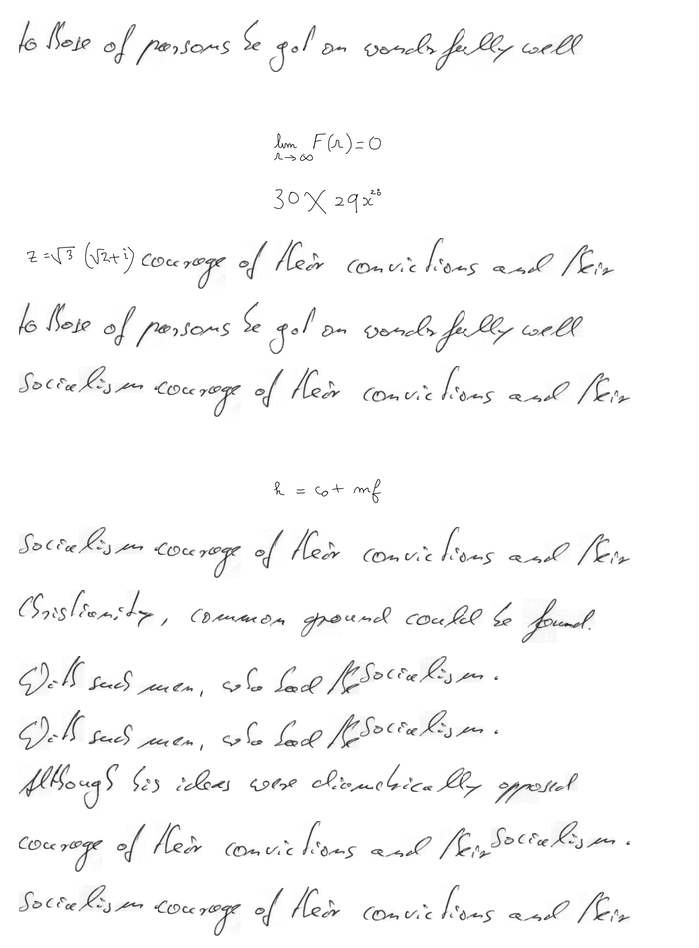 to those of persons he got on wonderfully well
lim F(r) = 0
r → ∞
30 X 29x^28
z = √3 (√2 + i) courage of their convictions and their
to those of persons he got on wonderfully well
Socialism courage of their convictions and their
h = c_0 + mf
Socialism courage of their convictions and their
Christianity, common ground could be found.
With such men, who had the Socialism.
With such men, who had the Socialism.
Although his ideas were diametrically opposed
courage of their convictions and their Socialism.
Socialism courage of their convictions and their